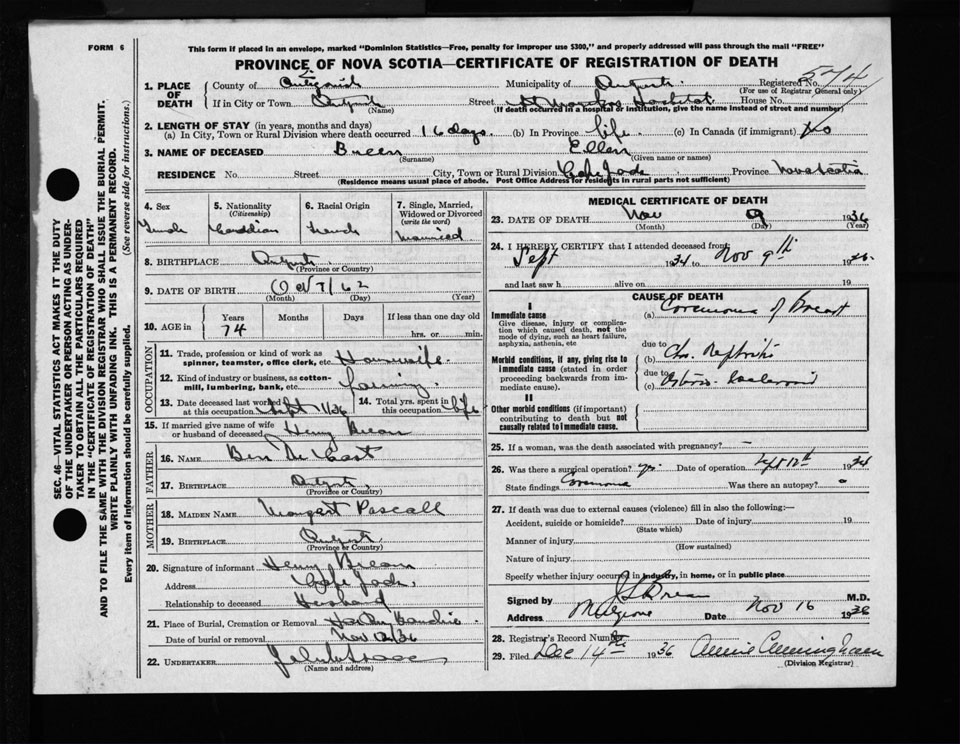 FORM 6
This form if placed in an envelope, marked "Dominion Statistics—Free, penalty for improper use $300," and properly addressed will pass through the mail "FREE"
PROVINCE OF NOVA SCOTIA—CERTIFICATE OF REGISTRATION OF DEATH
574
1. PLACE OF DEATH
County of Antigonish Municipality of Registered No.
(For use of Registrar General only)
If in City or Town Street St Marthas Hospital House No.
(Name) (If death occurred in a hospital or institution, give the name instead of street and number)
2. LENGTH OF STAY (in years, months and days)
(a) In City, Town or Rural Division where death occurred 16 days. (b) In Province life. (c) In Canada (if immigrant) No
3. NAME OF DECEASED Breen Ellen
(Surname) (Given name or names)
RESIDENCE No. Street City, Town or Rural Division Cape Jack Province Nova Scotia
(Residence means usual place of abode. Post Office Address for residents in rural parts not sufficient)
4. Sex Female
5. Nationality (Citizenship) Canadian
6. Racial Origin French
7. Single, Married, Widowed or Divorced (write the word) Married
8. BIRTHPLACE
(Province or Country)
9. DATE OF BIRTH Oct 7/62
(Month) (Day) (Year)
10. AGE in Years 74 Months Days If less than one day old
hrs. or min.
OCCUPATION
11. Trade, profession or kind of work as spinner, teamster, office clerk, etc. Housewife.
12. Kind of industry or business, as cotton-mill, lumbering, bank, etc. farming.
13. Date deceased last worked at this occupation Sept 1/36
14. Total yrs. spent in this occupation life
15. If married give name of wife or husband of deceased Henry Breen
FATHER
16. NAME Ben De Coste
17. BIRTHPLACE
(Province or Country)
MOTHER
18. MAIDEN NAME Margaret Pascall
19. BIRTHPLACE
(Province or Country)
20. Signature of informant Henry Breen
Address Cape Jack.
Relationship to deceased Husband
21. Place of Burial, Cremation or Removal Harbour Bouchie
Date of burial or removal Nov 12/36
22. UNDERTAKER
(Name and address)
MEDICAL CERTIFICATE OF DEATH
23. DATE OF DEATH Nov 9 1936
(Month) (Day) (Year)
24. I HEREBY CERTIFY that I attended deceased from
Sept 1934 to Nov 9th 1936.
and last saw h alive on 19
CAUSE OF DEATH
I
Immediate cause
Give disease, injury or complication which caused death, not the mode of dying, such as heart failure, asphyxia, asthenia, etc
(a) Carcinoma of Breast
Morbid conditions, if any, giving rise to immediate cause (stated in order proceeding backwards from immediate cause).
due to
(b) Chr. Nephritis
due to
(c)
II
Other morbid conditions (if important) contributing to death but not causally related to immediate cause.
25. If a woman, was the death associated with pregnancy? —
26. Was there a surgical operation? yes. Date of operation Sept 12th 1934
State findings Carcinoma Was there an autopsy? o
27. If death was due to external causes (violence) fill in also the following:—
Accident, suicide or homicide? Date of injury 19
(State which)
Manner of injury
(How sustained)
Nature of injury
Specify whether injury occurred in industry, in home, or in public place
Signed by M.D.
Address Mulgrave Date Nov 16 1936
28. Registrar's Record Number
29. Filed Dec 14th 1936 Annie Cunningham
(Division Registrar)
SEC. 46—VITAL STATISTICS ACT MAKES IT THE DUTY OF THE UNDERTAKER OR PERSON ACTING AS UNDERTAKER TO OBTAIN ALL THE PARTICULARS REQUIRED IN THE "CERTIFICATE OF REGISTRATION OF DEATH" AND TO FILE THE SAME WITH THE DIVISION REGISTRAR WHO SHALL ISSUE THE BURIAL PERMIT.
WRITE PLAINLY WITH UNFADING INK. THIS IS A PERMANENT RECORD.
Every item of information should be carefully supplied. (See reverse side for instructions.)